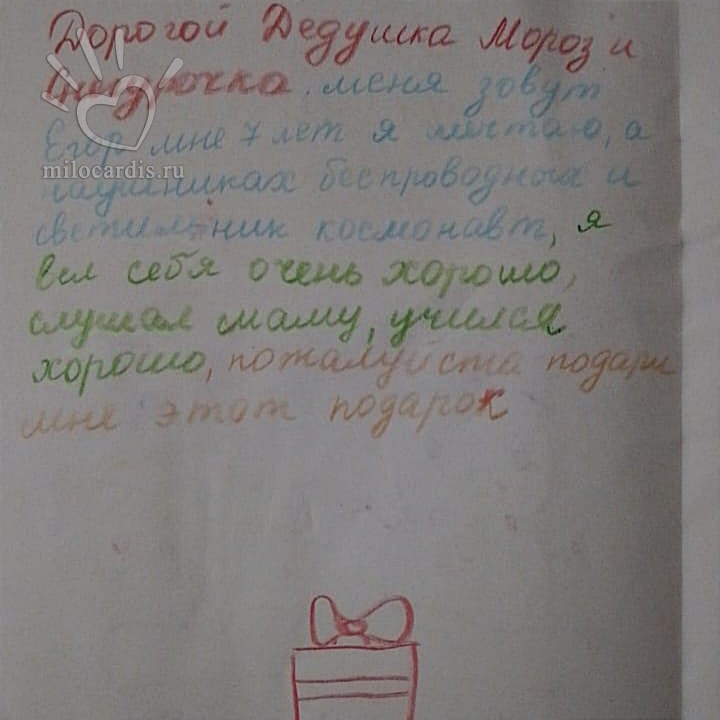 Дорогой Дедушка Мороз и
Снегурочка. меня зовут
Егор мне 7 лет я мечтаю, о
milocardis.ru
наушниках беспроводных и
светильник космонавт, я
вел себя очень хорошо,
слушал маму, учился
хорошо, пожалуйста подари
мне этот подарок